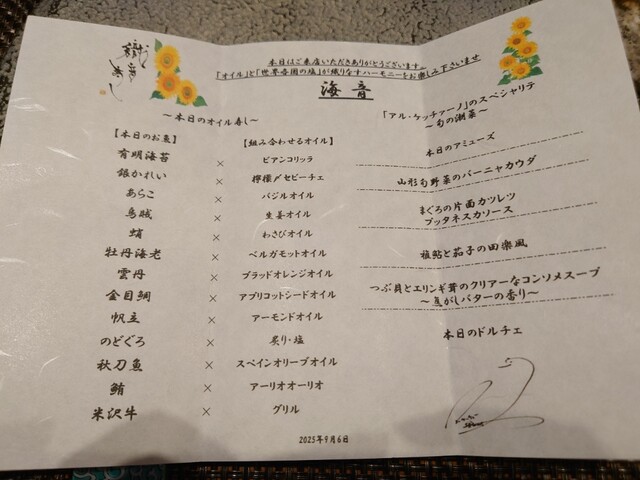 本日はご来店いただきありがとうございます。
「オイル」と「世界各国の塩」が織りなすハーモニーをお楽しみ下さいませ
海音
～本日のオイル寿し～
【本日のお魚】 【組み合わせるオイル】
有明海苔 × ビアンコリッラ
銀かれい × 檸檬〆セビーチェ
あらこ × バジルオイル
烏賊 × 生姜オイル
蛸 × わさびオイル
牡丹海老 × ベルガモットオイル
雲丹 × ブラッドオレンジオイル
金目鯛 × アプリコットシードオイル
帆立 × アーモンドオイル
のどぐろ × 炙り・塩
秋刀魚 × スペインオリーブオイル
鮪 × アーリオオーリオ
米沢牛 × グリル
「アル・ケッチァーノ」のスペシャリテ
～旬の潮菜～
本日のアミューズ
山形旬野菜のバーニャカウダ
まぐろの片面カツレツ
プッタネスカソース
稚鮎と茄子の田楽風
つぶ貝とエリンギ茸のクリアーなコンソメスープ
～焦がしバターの香り～
本日のドルチェ
2025年9月6日